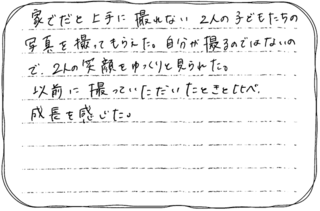 家でだと上手に撮れない2人の子どもたちの
写真を撮ってもらえた。自分が撮るのではないの
で、2人の笑顔をゆっくりと見られた。
以前に撮っていただいたときと比べ、
成長を感じた。